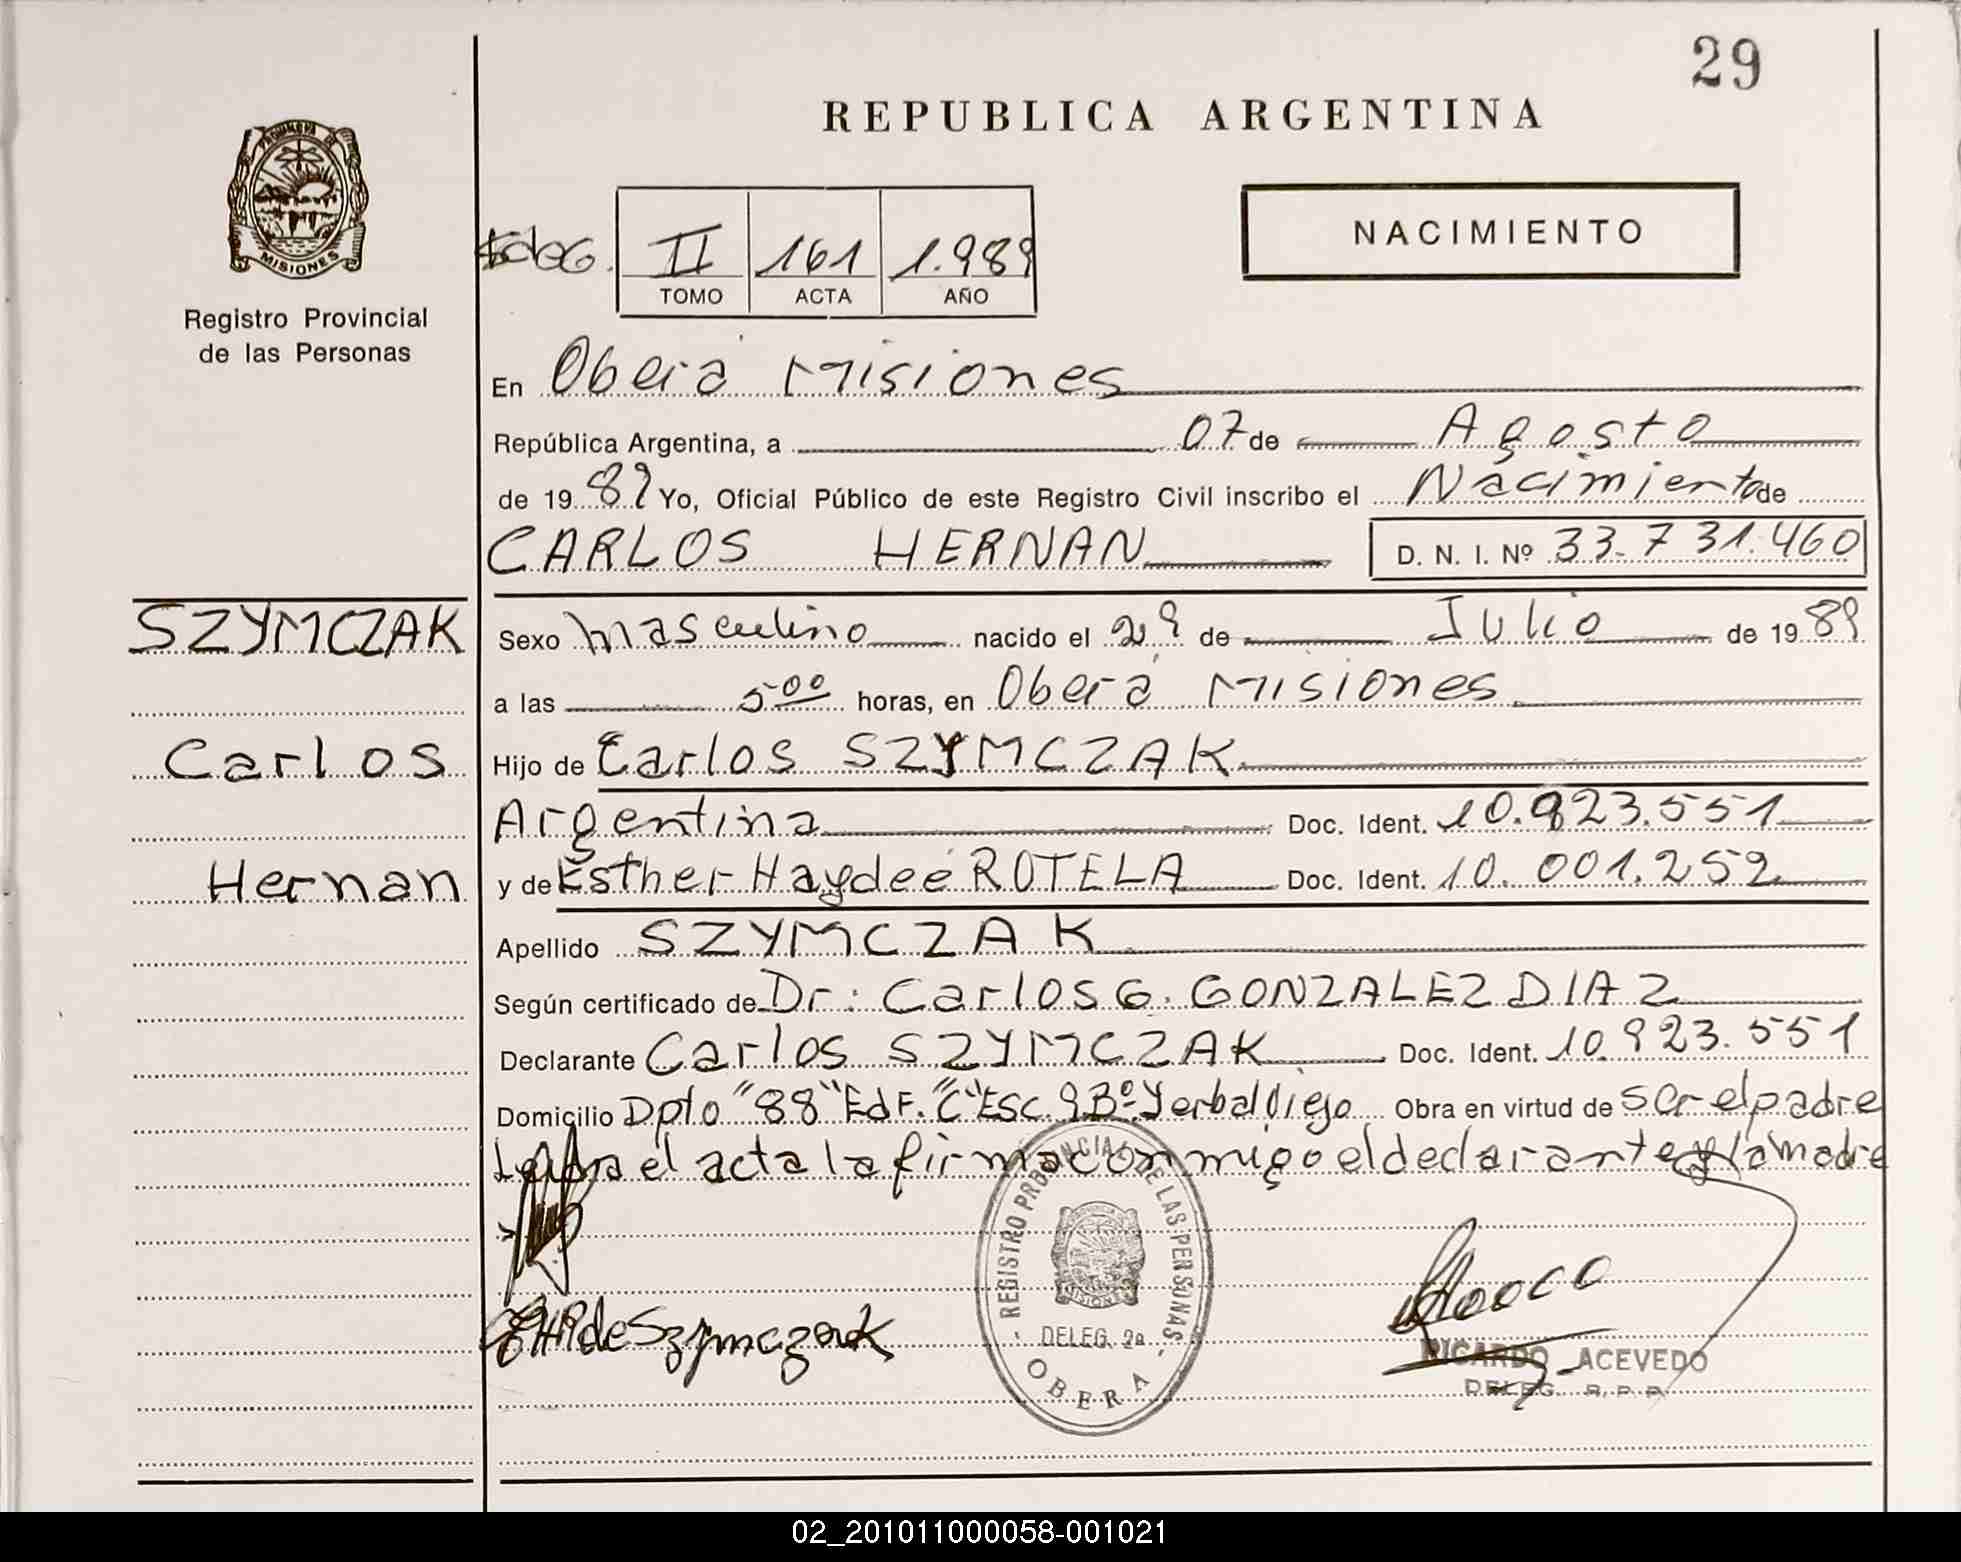 29
REPUBLICA ARGENTINA
PROVINCIA DE
MISIONES
Registro Provincial
de las Personas
II 161 1.989
TOMO ACTA AÑO
NACIMIENTO
En Oberá Misiones
República Argentina, a 07 de Agosto
de 1989 Yo, Oficial Público de este Registro Civil inscribo el Nacimiento de
CARLOS HERNAN D. N. I. Nº 33.731.460
SZYMCZAK
Carlos
Hernan
Sexo Masculino nacido el 29 de Julio de 1989
a las 5⁰⁰ horas, en Oberá Misiones
Hijo de Carlos SZYMCZAK
Argentina Doc. Ident. 10.923.551
y de Esther Haydeé ROTELA Doc. Ident. 10.001.252
Apellido SZYMCZAK
Según certificado de Dr: Carlos G. GONZALEZ DIAZ
Declarante Carlos SZYMCZAK Doc. Ident. 10.923.551
Domicilio Dpto "88" Edf. "C" Esc. 9 Bº Yerbal Viejo Obra en virtud de ser el padre
Leida el acta la firma conmigo el declarante y la madre
EHR de Szymczak
REGISTRO PROVINCIAL DE LAS PERSONAS
MISIONES
DELEG. 2a
OBERA
RICARDO ACEVEDO
DELEG. R. P. P.
02_201011000058-001021